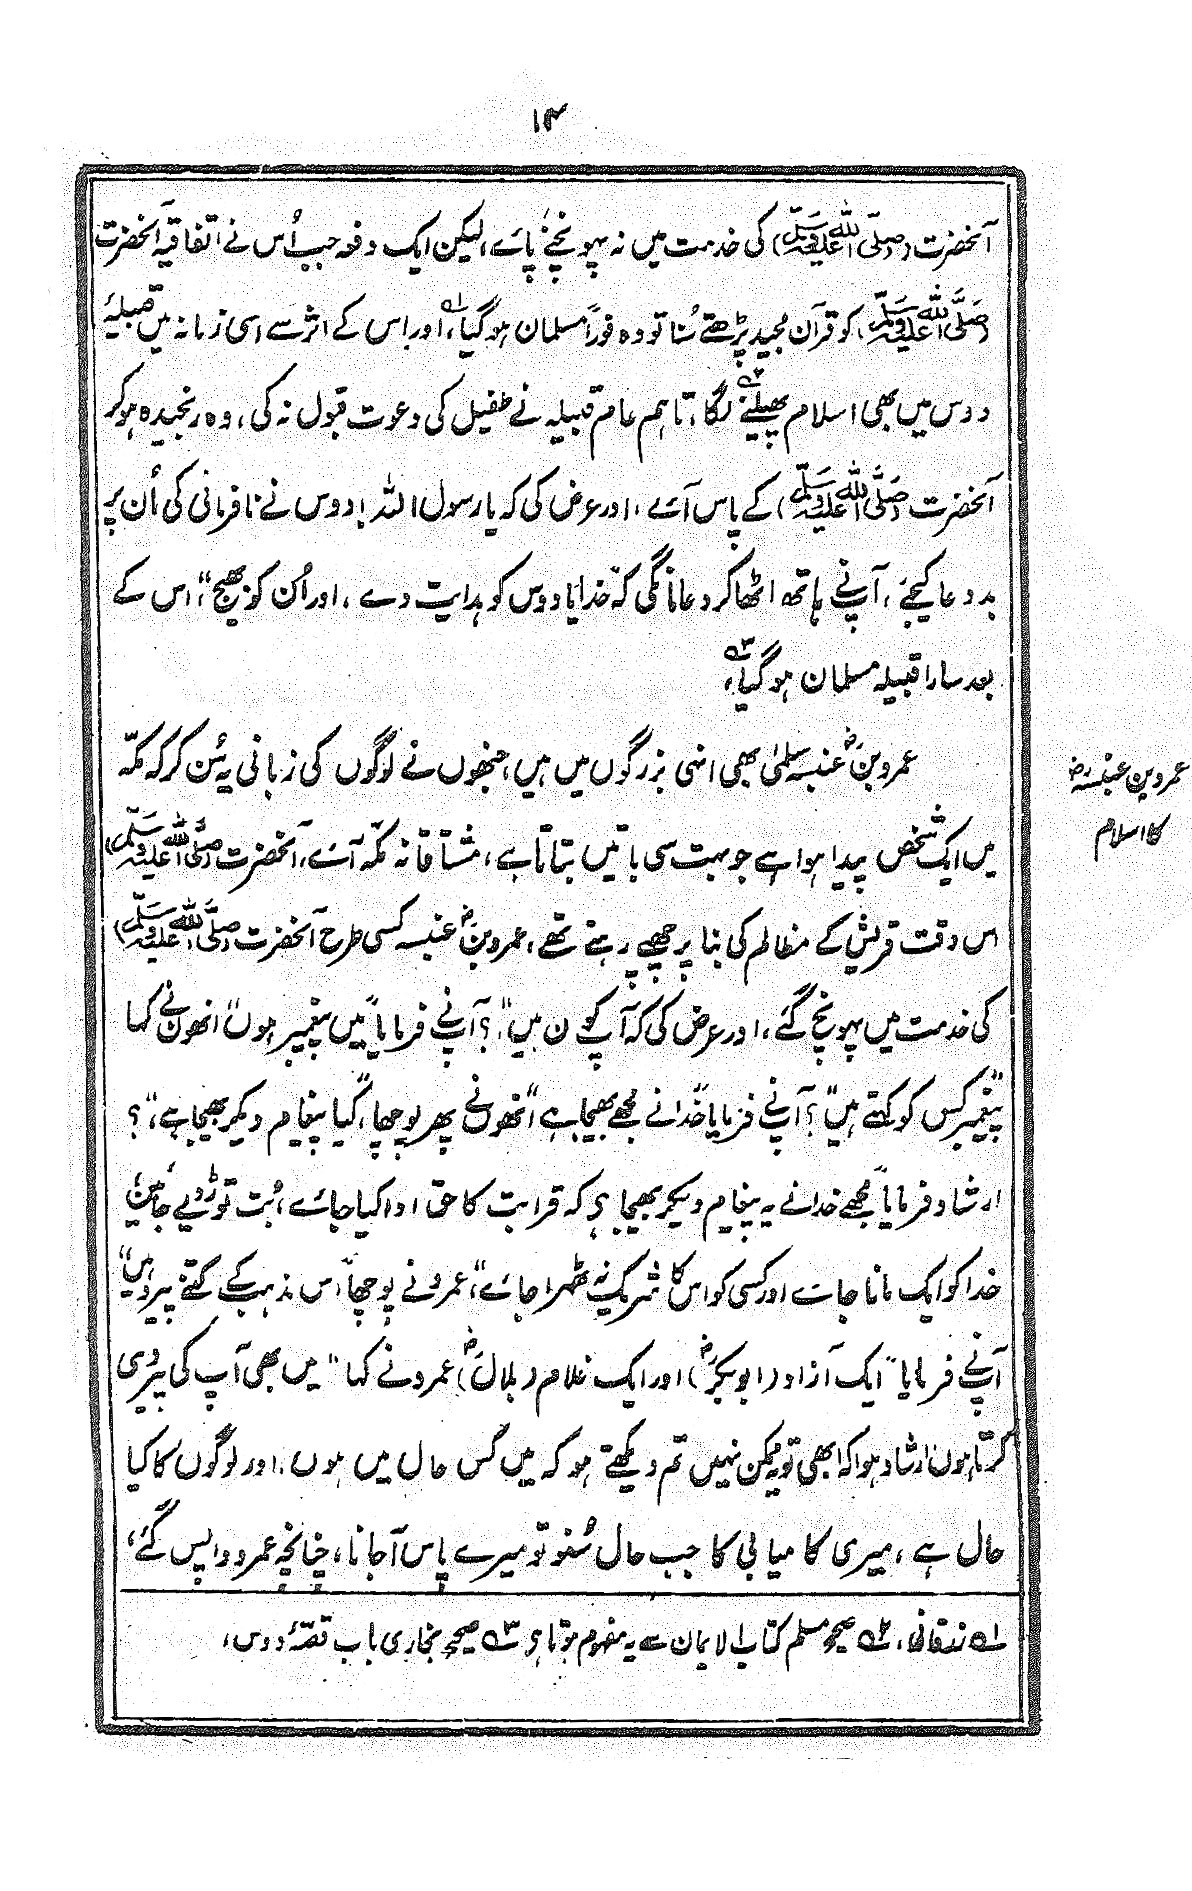 ۱۴
آنحضرت (صلی اللہ علیہ وسلم) کی خدمت میں نہ پہونچنے پاے، لیکن ایک دفعہ جب اُس نے اتفاقیہ آنحضرت
(صلی اللہ علیہ وسلم) کو قرآن مجید پڑھتے سُنا تو وہ فوراً مسلمان ہو گیا، لہ اور اس کے اثر سے اسی زمانہ میں قبیلۂ
دوس میں بھی اسلام پھیلنے لگا، تاہم عام قبیلہ نے طفیل کی دعوت قبول نہ کی، وہ رنجیدہ ہو کر
آنحضرت (صلی اللہ علیہ وسلم) کے پاس آے، اور عرض کی کہ یا رسول اللہ! دوس نے نافرمانی کی اُن پر
بد دعا کیجئے، آپنے ہاتھ اٹھا کر دعا مانگی کہ "خدایا دوس کو ہدایت دے، اور اُن کو بھیج"، اس کے
بعد سارا قبیلہ مسلمان ہو گیا،
عمرو بن عنبسہ سلمیٰ بھی انہی بزرگوں میں ہیں، جنھوں نے لوگوں کی زبانی یہ سُن کر کہ مکہ
میں ایک شخص پیدا ہوا ہے جو بہت سی باتیں بتاتا ہے، مشتاقانہ مکہ آے، آنحضرت (صلی اللہ علیہ وسلم)
اس وقت قریش کے مظالم کی بنا پر چھپے رہتے تھے، عمرو بن عنبسہ کسی طرح آنحضرت (صلی اللہ علیہ وسلم)
کی خدمت میں پہونچ گئے، اور عرض کی کہ آپ کون ہیں"؟ آپنے فرمایا "میں پیغمبر ہوں" انھوں نے کہا
"پیغمبر کس کو کہتے ہیں"؟ آپنے فرمایا "خدا نے مجھے بھیجا ہے" انھوں نے پھر پوچھا، "کیا پیغام دیکر بھیجا ہے"؟
ارشاد فرمایا "مجھے خدا نے یہ پیغام دیکر بھیجا ہی کہ قرابت کا حق ادا کیا جاے، بُت توڑ دیے جائیں
خدا کو ایک مانا جاے اور کسی کو اس کا شریک نہ ٹھہرا جاے"، عمرو نے پوچھا "اس مذہب کے کتنے پیرو ہیں"
آپنے فرمایا "ایک آزاد (ابوبکر) اور ایک غلام (بلال) عمرو نے کہا "میں بھی آپ کی پیروی
کرتا ہوں" ارشاد ہوا کہ ابھی تو یہ ممکن نہیں تم دیکھتے ہو کہ میں کس حال میں ہوں، اور لوگوں کا کیا
حال ہے، میری کامیابی کا جب حال سُنو تو میرے پاس آ جانا، چنانچہ عمرو واپس گئے،
عمرو بن عنبسہ رض
کا اسلام
لہ زرقانی، ۲ صحیح مسلم کتاب الایمان سے یہ مفہوم ہوتا ہی ۳ صحیح بخاری باب قصۂ دوس،